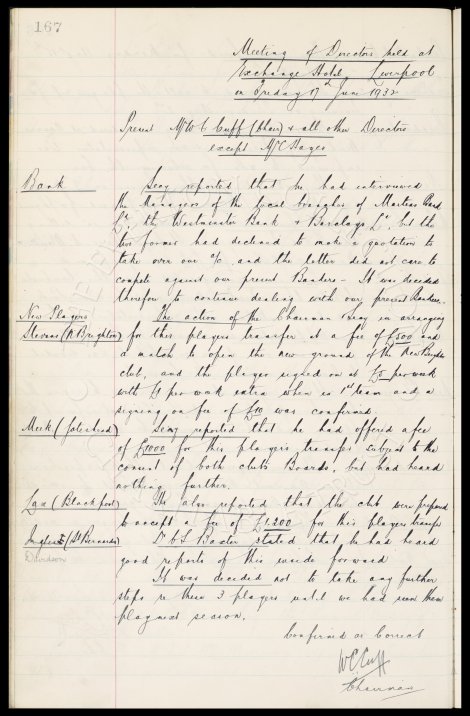 167
Meeting of Directors held at
Exchange Hotel, Liverpool
on Friday 17th June 1932
Present Mr W C Cuff (Chair) & all other Directors
except Mr C Hayes
Bank
Secy reported that he had interviewed
the Managers of the local branches of Martins Bank
Ld, the Westminster Bank & Barclays Ld, but the
two former had declined to make a quotation to
take over our a/c and the latter did not care to
compete against our present Bankers - It was decided
therefore to continue dealing with our present Bankers.
New Players
The action of the Chairman & Secy in arranging
Stevens (N. Brighton)
for this players transfer at a fee of £500 and
a match to open the new ground of the New Brighton
club, and the player signed on at £5 per week
with £1 per week extra when in 1st team and a
signing on fee of £10 was confirmed.
Meek (Gateshead)
Secy reported that he had offered a fee
of £1000 for this players transfer subject to the
consent of both clubs Boards, but had heard
nothing further.
(Blackpool)
He also reported that the club were prepared
to accept a fee of £1,200 for this players transfer
(St Bernards)
Dr C S Baxter stated that he had heard
Davidson
good reports of this inside forward
It was decided not to take any further
steps re these 3 players until we had seen them
play next season.
Confirmed as Correct
W C Cuff
Chairman